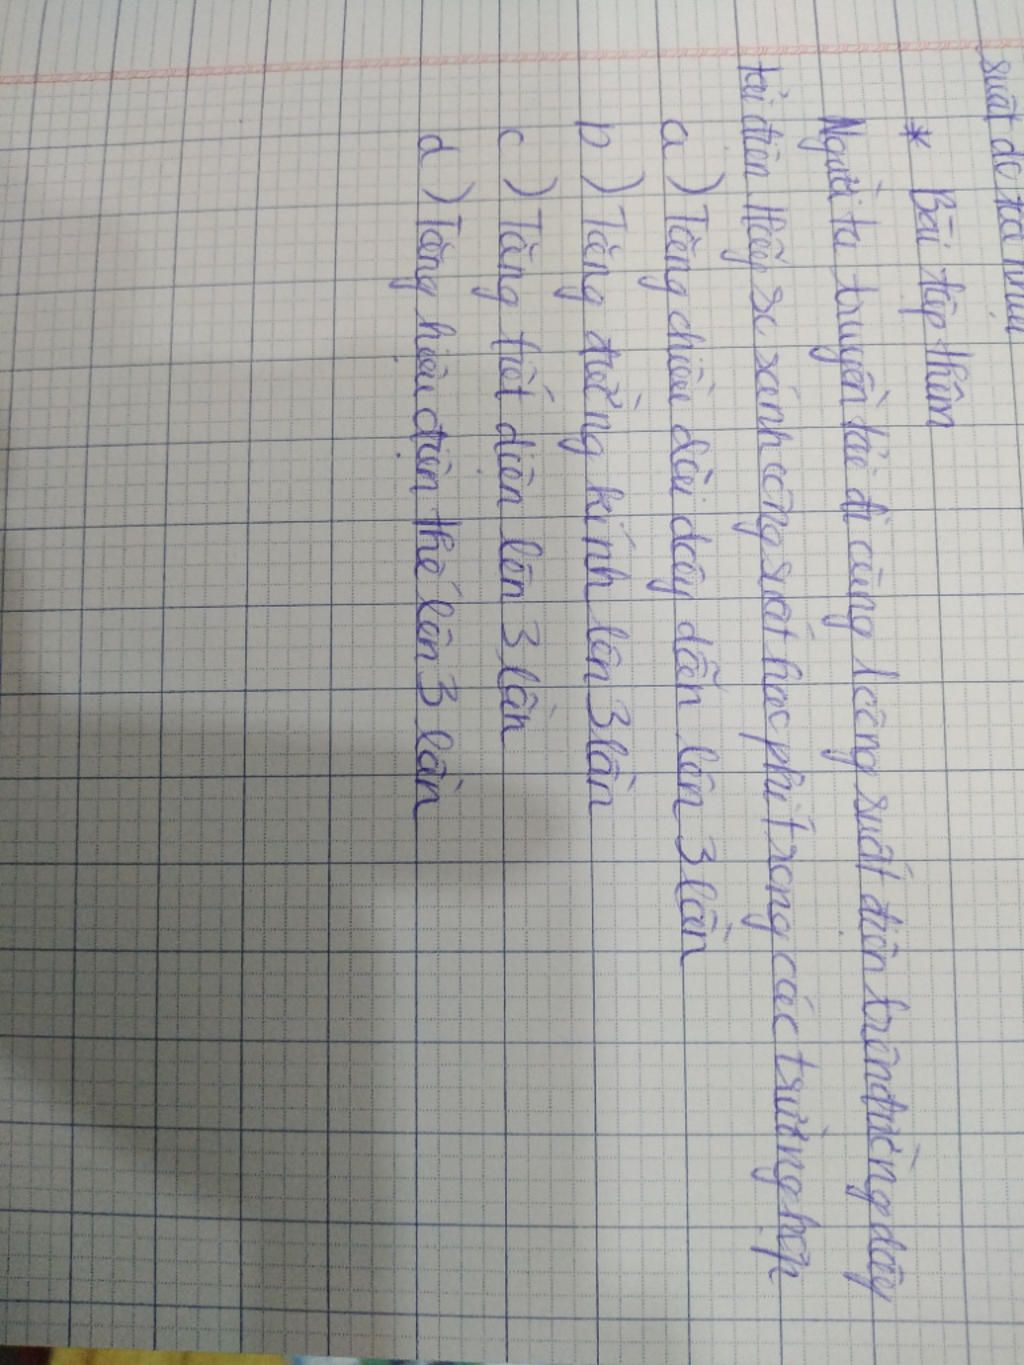 suất do toả nhiệt
* Bài tập thêm
Người ta truyền tải đi cùng 1 công suất điện trên đường dây
tải điện Hãy so sánh công suất hao phí trong các trường hợp
a) Tăng chiều dài dây dẫn lên 3 lần
b) Tăng đường kính lên 3 lần
c) Tăng tiết diện lên 3 lần
d) Tăng hiệu điện thế lên 3 lần